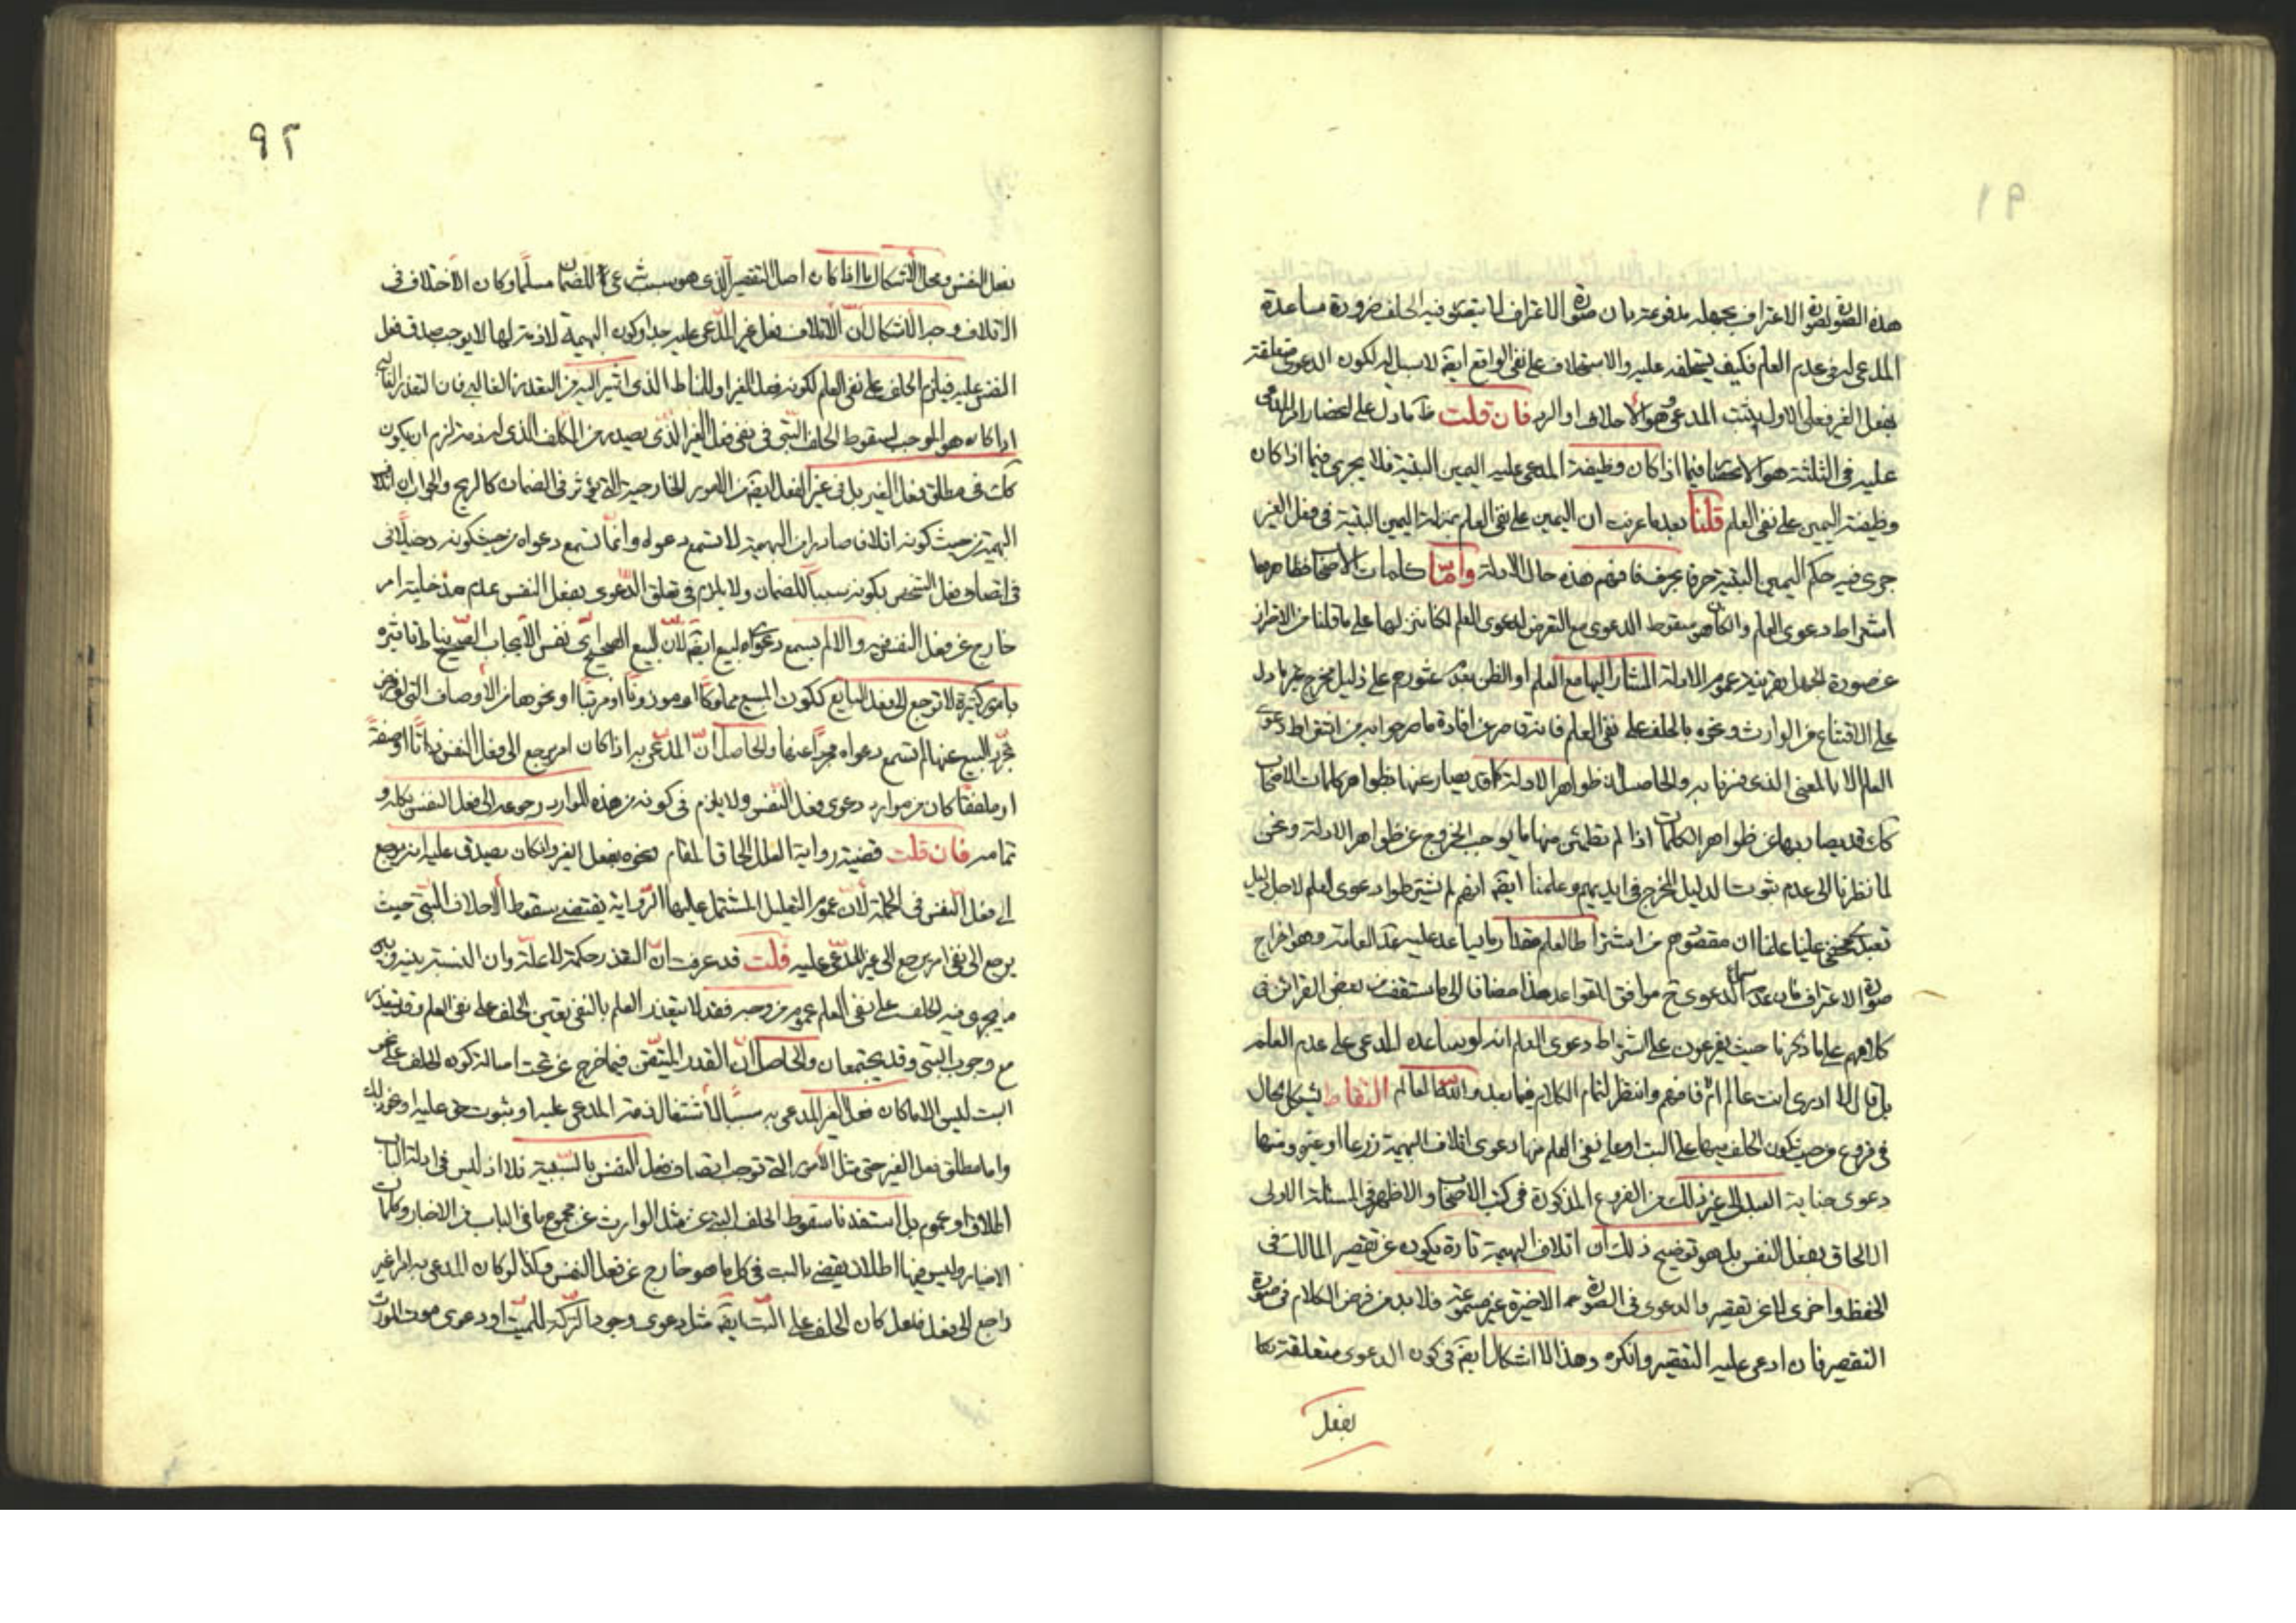 هذه الصورة بصورة الاعتراف بجهله مدفوعة بان صورة الاعتراف لا يتصور فيه الحلف ضرورة مساعدة
المدعى له فى عدم العلم فكيف يستحلفه عليه والاستحلاف على نفى الواقع ايضا لا سبيل اليه لكون الدعوى متعلقة
بفعل الغير فعلى الاول يثبت المدعى وهو الاحلاف او الرد فان قلت ما دل على انحصار امر المدعى
عليه فى الثلثة هو الانحصار فيما اذا كان وظيفة المدعى عليه اليمين البتية فلا يجرى فيما اذا كان
وظيفته اليمين على نفى العلم قلنا بعد ما عرفت ان اليمين على نفى العلم بمنزلة اليمين البتية فى فعل الغير
جرى فيه حكم اليمين البتية حرفا بحرف فافهم هذه حال الادلة واما كلمات الاصحاب فظاهرها
اشتراط دعوى العلم والكاهو سقوط الدعوى مع التعرض لدعوى العلم لكنا ننزلها على ما قلنا من الاحتراز
عن صورة الجهل بقرينة عموم الادلة المشار اليها مع العلم او الظن بعدم عثورهم على دليل مخرج غير ما دل
على الاقتناع من الوارث ونحوه بالحلف على نفى العلم فانه قاصر عن افادة ما صرحوا به من اشتراط دعوى
العلم الا بالمعنى الذى فسرنا به والحاصل ان ظواهر الادلة كما قد يصار عنها بظواهر كلمات الاصحاب
كك قد يصار بها عن ظواهر الكلمات اذا لم نطمئن منها ما يوجب الخروج عن ظواهر الادلة ونحن
لما نظرنا الى عدم ثبوت الدليل المخرج فى ايديهم وعلمنا ايضا انهم لم يشترطوا دعوى العلم لاجل دليل
تعبدى خفى علينا علمنا ان مقصودهم من اشتراط العلم مقدار ما يساعد عليه القاعدة وهو اخراج
صورة الاعتراف فان عدم سماع الدعوى ح موافق للقواعد هذا مضافا الى ما ستقف من بعض القرائن فى
كلامهم على ما ذكرنا حيث يفرعون على اشتراط دعوى العلم انه لو يساعده المدعى على عدم العلم
بل قال لا ادرى انت عالم ام لا فافهم وانتظر لتمام الكلام فيما بعد والله العالم التقاط يشكل الحال
فى فروع من حيث كون الحلف فيها على البت او على نفى العلم منها دعوى اتلاف البهيمة زرعا او غيره ومنها
دعوى جناية العبد الى غير ذلك من الفروع المذكورة فى كتب الاصحاب والاظهر فى المسئلة الاولى
الالحاق بفعل النفس بل هو توضيح ذلك ان اتلاف البهيمة تارة يكون عن تقصير المالك فى
الحفظ واخرى لا عن تقصير والدعوى فى الصورة الاخيرة غير مسموعة فلا بد من فرض الكلام فى صورة
التقصير فان ادعى عليه التقصير وانكره وهذا لا اشكال ايضا فى كون الدعوى متعلقة كا
بفعل
٩٢
بفعل النفس ومحل الاشكال ما اذا كان اصل التقصير الذى هو سبب شرعى للضمان مسلما وكان الاختلاف فى
الاتلاف وجه الاشكال ان الاتلاف فعل غير المدعى عليه جدا وكون البهيمة لازمة لها لا يوجب صدق فعل
النفس عليه فيلزم الحلف على نفى العلم لكونه فعل الغير او للمناط الذى اشير اليه من التعذر الغالبى فان التعذر الغالبى
اذا كان هو الموجب لسقوط الحلف البتى فى نفى فعل الغير الذى يصدر من المكلف الذى له ذمة لزم ان يكون
كك فى مطلق فعل الغير بل فى غير الفعل ايضا من الامور الخارجية التى يؤثر فى الضمان كالريح والجواب ان اتلاف
البهيمة من حيث كونه اتلاف صادر من البهيمة لا تسمع دعواه وانما تسمع دعواه من حيث كونه دخيلا فى
فى اتصاف فعل الشخص بكونه سببا للضمان ولا يلزم فى تعلق الدعوى بفعل النفس عدم مدخلية امر
خارج عن فعل النفس فيه والا لم يسمع دعواه لبيع ايضا لان البيع الصحيح اى نفس الايجاب الصحيح يناط تاثيره
بامور كثيرة لا ترجع الى فعل البايع ككون المبيع مملوكا او موزونا او مرئيا او نحوها من الاوصاف التى لو فرض
تجرد البيع عنها لم تسمع دعواه مجردا عنها والحاصل ان المدعى به اذا كان امر يرجع الى فعل النفس ذاتا او صفة
او ملفقا كان من موارد دعوى فعل النفس ولا يلزم فى كونه من هذه الموارد رجوعه الى فعل النفس بكله و
تمامه فان قلت قضية رواية العلل الحاق المقام ونحوه بفعل الغير وان كان يصدق عليه انه يرجع
الى فعل النفس فى الجملة لان عموم التعليل المشتمل عليها الرواية يقتضى سقوط الاحلاف البتى حيث
يرجع الى نفى امر يرجع الى غير المدعى عليه قلت قد عرفت ان التعذر حكمة لا علة وان النسبة بينه وبين
ما يجرى فيه الحلف على نفى العلم عموم من وجه فقد لا يتعذر العلم بالنفى يتعين الحلف على نفى العلم وقد يتعذر
مع وجوب البتى وقد يجتمعان والحاصل ان القدر المتيقن فيما خرج عن تحت اصالة كون الحلف على نحو
البت ليس الا ما كان فعل الغير المدعى به سببا لاشتغال ذمة المدعى عليه او ثبوت حق عليه او نحو ذلك
واما مطلق فعل الغير حتى مثل الامور التى توجب اتصاف فعل النفس بالسببية فلا اذ ليس فى ادلة الباب
اطلاق او عموم بل استفدنا سقوط الحلف البتى عن مثل الوارث عن مجموع ما فى الباب من الاخبار وكلمات
الاخيار وليس فيها اطلاق يقضى بالبت فى كل ما هو خارج عن فعل النفس وكذا لو كان المدعى به امرا غير
راجع الى فعل فلعل كان الحلف على البت ايضا مثل دعوى وجود التركة للميت او دعوى موت المورث